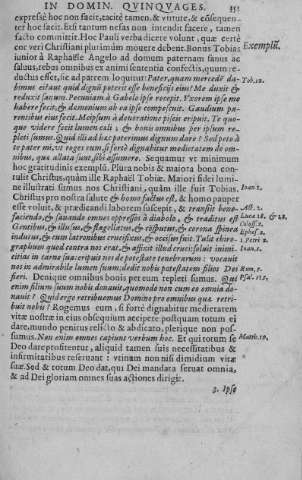 IN DOMIN. QVINQVAGES. 351
expresse hoc non facit, tacitè tamen, & virtute, & consequen-
ter hoc facit. Etsi tantum nefas non intendit facere, tamen
facto committit. Hoc Pauli verba dicere volunt, quæ certè
cor veri Christiani plurimùm mouere debent. Bonus Tobias
iunior à Raphaële Angelo ad domum paternam sanus ac
saluus, rebus omnibus ex animi sententia confectis, quum re-
ductus esset, sic ad patrem loquitur: Pater, quam mercedē da-
bimus ei? aut quid dignū poterit esse beneficiis eius? Me duxit &
reduxit sanum. Pecuniam à Gabelo ipse recepit. Vxorem ipse me
habere fecit, & dæmonium ab ea ipse compescuit. Gaudium pa-
rentibus eius fecit. Meipsum à deuoratione piscis eripuit. Te quo-
que videre fecit lumen cæli: & bonis omnibus per ipsum re-
pleti sumus. Quid illi ad hæc poterimus dignum dare? Sed peto à
te pater mi, vt roges eum, si fortè dignabitur medietatem de om-
nibus, quæ allata sunt, sibi assumere. Sequamur vt minimum
hoc gratitudinis exemplū. Plura nobis & maiora bona con-
tulit Christus, quàm ille Raphaël Tobiæ. Maiori fidei lumi-
ne illustrati sumus nos Christiani, quàm ille fuit Tobias.
Christus pro nostra salute & homo factus est, & homo pauper
esse voluit, & prædicandi laborem suscepit, & transiit bene-
faciendo, & sanando omnes oppressos à diabolo, & traditus est
Gentibus, & illusus, & flagellatus, & cōsputus, & corona spinea
indutus, & cum latronibus crucifixus, & occisus fuit. Tulit chiro-
graphum quod contra nos erat, & affixit illud cruci: soluit inimi-
citias in carne sua: eripuit nos de potestate tenebrarum: vocauit
nos in admirabile lumen suum: dedit nobis potestatem filios Dei
fieri. Denique omnibus bonis per eum repleti sumus. Qui
enim filium suum nobis donauit, quomodo non cum eo omnia do-
nauit? Quid ergo retribuemus Domino pro omnibus quæ retri-
buit nobis? Rogemus eum, si fortè dignabitur medietatem
vitæ nostræ in eius obsequium accipere postquam totum ei
dare, mundo penitus relicto & abdicato, plerique non pos-
sumus. Non enim omnes capiunt verbum hoc. Et qui totum se
Deo dare profitentur, aliquid tamen suis necessitatibus &
infirmitatibus reseruant: vtinam non nisi dimidium vitæ
suæ. Sed & totum Deo dat, qui Dei mandata seruat omnia,
& ad Dei gloriam omnes suas actiones dirigit.
3. Ipse
Exemplū.
Tob. 12.
Ioan. 1.
Act. 2.
Lucæ 18. & 28.
Coloss. 2.
Ephes. 2.
1. Petri 2.
Ioan. 1.
Rom. 8.
Psal. 115.
Matth. 19.